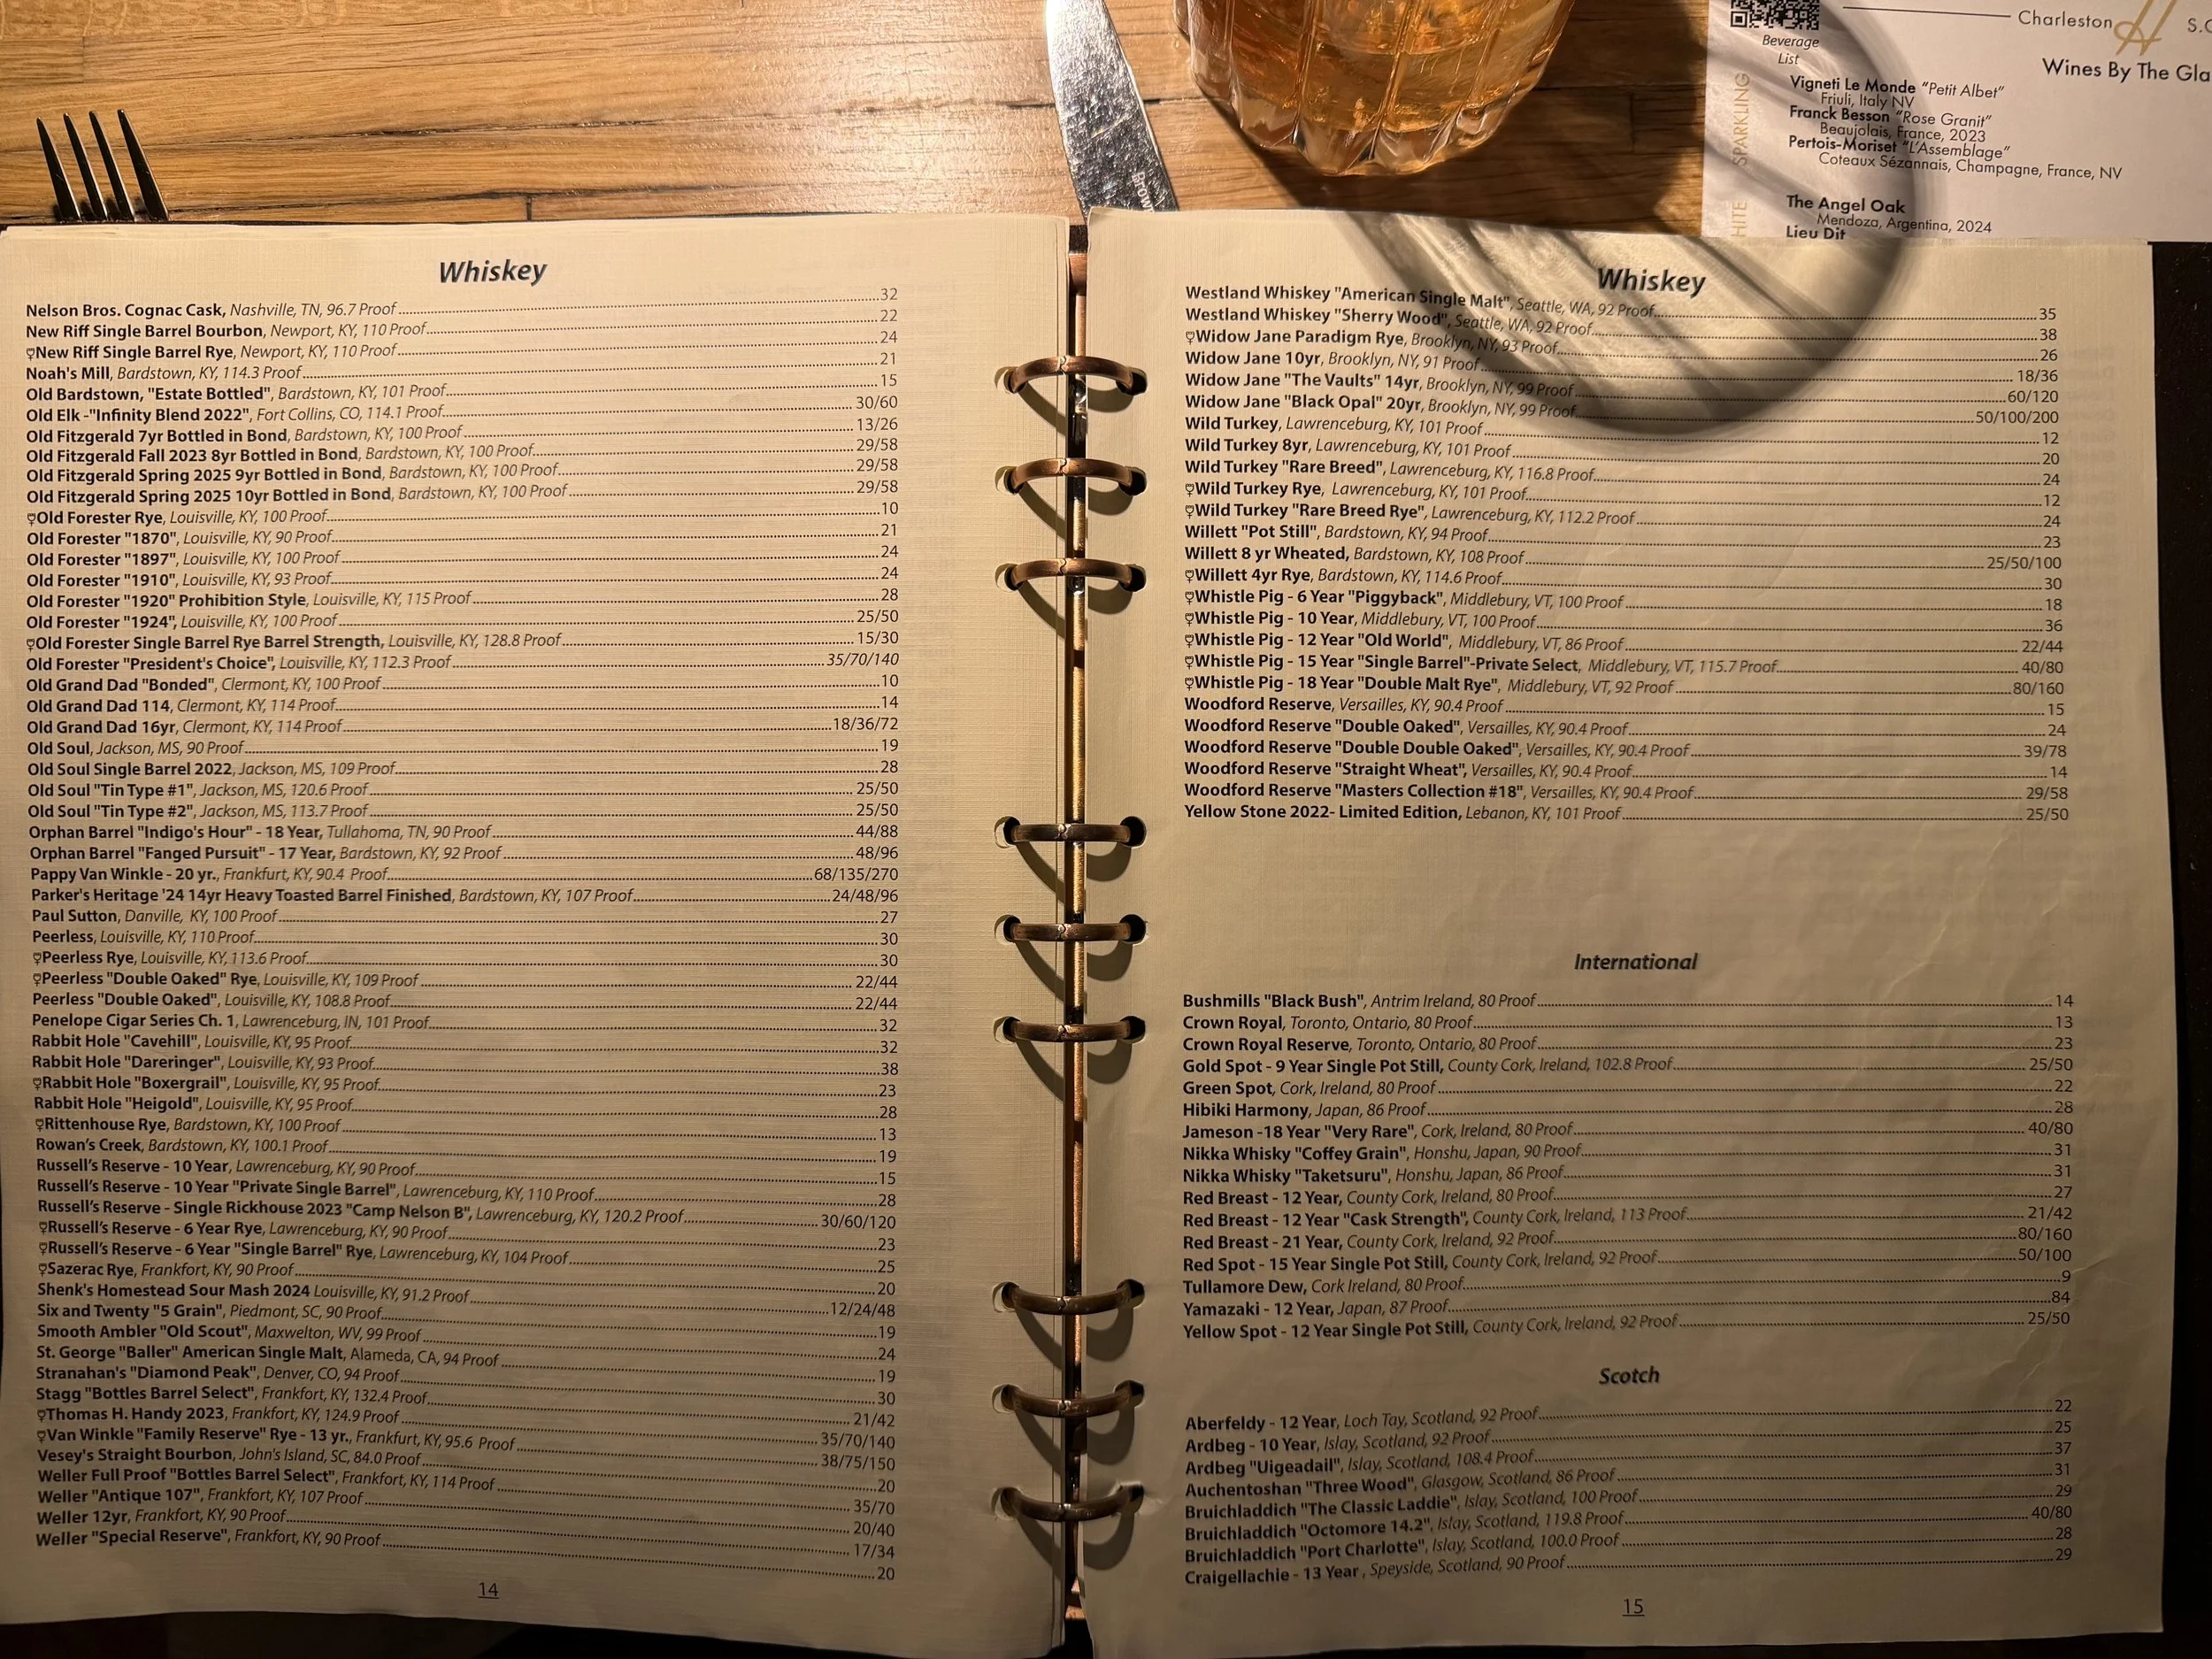 Charleston H S.C
Beverage
List
Wines By The Gla
SPARKLING
Vigneti Le Monde "Petit Albet"
Friuli, Italy NV
Franck Besson "Rose Granit"
Beaujolais, France, 2023
Pertois-Moriset "L'Assemblage"
Coteaux Sézannais, Champagne, France, NV
HITE
The Angel Oak
Mendoza, Argentina, 2024
Lieu Dit
Whiskey
Nelson Bros. Cognac Cask, Nashville, TN, 96.7 Proof 32
New Riff Single Barrel Bourbon, Newport, KY, 110 Proof 22
New Riff Single Barrel Rye, Newport, KY, 110 Proof 24
Noah's Mill, Bardstown, KY, 114.3 Proof 21
Old Bardstown, "Estate Bottled", Bardstown, KY, 101 Proof 15
Old Elk -"Infinity Blend 2022", Fort Collins, CO, 114.1 Proof 30/60
Old Fitzgerald 7yr Bottled in Bond, Bardstown, KY, 100 Proof 13/26
Old Fitzgerald Fall 2023 8yr Bottled in Bond, Bardstown, KY, 100 Proof 29/58
Old Fitzgerald Spring 2025 9yr Bottled in Bond, Bardstown, KY, 100 Proof 29/58
Old Fitzgerald Spring 2025 10yr Bottled in Bond, Bardstown, KY, 100 Proof 29/58
Old Forester Rye, Louisville, KY, 100 Proof 10
Old Forester "1870", Louisville, KY, 90 Proof 21
Old Forester "1897", Louisville, KY, 100 Proof 24
Old Forester "1910", Louisville, KY, 93 Proof 24
Old Forester "1920" Prohibition Style, Louisville, KY, 115 Proof 28
Old Forester "1924", Louisville, KY, 100 Proof 25/50
Old Forester Single Barrel Rye Barrel Strength, Louisville, KY, 128.8 Proof 15/30
Old Forester "President's Choice", Louisville, KY, 112.3 Proof 35/70/140
Old Grand Dad "Bonded", Clermont, KY, 100 Proof 10
Old Grand Dad 114, Clermont, KY, 114 Proof 14
Old Grand Dad 16yr, Clermont, KY, 114 Proof 18/36/72
Old Soul, Jackson, MS, 90 Proof 19
Old Soul Single Barrel 2022, Jackson, MS, 109 Proof 28
Old Soul "Tin Type #1", Jackson, MS, 120.6 Proof 25/50
Old Soul "Tin Type #2", Jackson, MS, 113.7 Proof 25/50
Orphan Barrel "Indigo's Hour" - 18 Year, Tullahoma, TN, 90 Proof 44/88
Orphan Barrel "Fanged Pursuit" - 17 Year, Bardstown, KY, 92 Proof 48/96
Pappy Van Winkle - 20 yr., Frankfurt, KY, 90.4 Proof 68/135/270
Parker's Heritage '24 14yr Heavy Toasted Barrel Finished, Bardstown, KY, 107 Proof 24/48/96
Paul Sutton, Danville, KY, 100 Proof 27
Peerless, Louisville, KY, 110 Proof 30
Peerless Rye, Louisville, KY, 113.6 Proof 30
Peerless "Double Oaked" Rye, Louisville, KY, 109 Proof 22/44
Peerless "Double Oaked", Louisville, KY, 108.8 Proof 22/44
Penelope Cigar Series Ch. 1, Lawrenceburg, IN, 101 Proof 32
Rabbit Hole "Cavehill", Louisville, KY, 95 Proof 32
Rabbit Hole "Dareringer", Louisville, KY, 93 Proof 38
Rabbit Hole "Boxergrail", Louisville, KY, 95 Proof 23
Rabbit Hole "Heigold", Louisville, KY, 95 Proof 28
Rittenhouse Rye, Bardstown, KY, 100 Proof 13
Rowan's Creek, Bardstown, KY, 100.1 Proof 19
Russell's Reserve - 10 Year, Lawrenceburg, KY, 90 Proof 15
Russell's Reserve - 10 Year "Private Single Barrel", Lawrenceburg, KY, 110 Proof 28
Russell's Reserve - Single Rickhouse 2023 "Camp Nelson B", Lawrenceburg, KY, 120.2 Proof 30/60/120
Russell's Reserve - 6 Year Rye, Lawrenceburg, KY, 90 Proof 23
Russell's Reserve - 6 Year "Single Barrel" Rye, Lawrenceburg, KY, 104 Proof 25
Sazerac Rye, Frankfort, KY, 90 Proof 20
Shenk's Homestead Sour Mash 2024 Louisville, KY, 91.2 Proof 12/24/48
Six and Twenty "5 Grain", Piedmont, SC, 90 Proof 19
Smooth Ambler "Old Scout", Maxwelton, WV, 99 Proof 24
St. George "Baller" American Single Malt, Alameda, CA, 94 Proof 19
Stranahan's "Diamond Peak", Denver, CO, 94 Proof 30
Stagg "Bottles Barrel Select", Frankfort, KY, 132.4 Proof 21/42
Thomas H. Handy 2023, Frankfort, KY, 124.9 Proof 35/70/140
Van Winkle "Family Reserve" Rye - 13 yr., Frankfurt, KY, 95.6 Proof 38/75/150
Vesey's Straight Bourbon, John's Island, SC, 84.0 Proof 20
Weller Full Proof "Bottles Barrel Select", Frankfort, KY, 114 Proof 35/70
Weller "Antique 107", Frankfort, KY, 107 Proof 20/40
Weller 12yr, Frankfort, KY, 90 Proof 17/34
Weller "Special Reserve", Frankfort, KY, 90 Proof 20
14
Whiskey
Westland Whiskey "American Single Malt", Seattle, WA, 92 Proof 35
Westland Whiskey "Sherry Wood", Seattle, WA, 92 Proof 38
Widow Jane Paradigm Rye, Brooklyn, NY, 93 Proof 26
Widow Jane 10yr, Brooklyn, NY, 91 Proof 18/36
Widow Jane "The Vaults" 14yr, Brooklyn, NY, 99 Proof 60/120
Widow Jane "Black Opal" 20yr, Brooklyn, NY, 99 Proof 50/100/200
Wild Turkey, Lawrenceburg, KY, 101 Proof 12
Wild Turkey 8yr, Lawrenceburg, KY, 101 Proof 20
Wild Turkey "Rare Breed", Lawrenceburg, KY, 116.8 Proof 24
Wild Turkey Rye, Lawrenceburg, KY, 101 Proof 12
Wild Turkey "Rare Breed Rye", Lawrenceburg, KY, 112.2 Proof 24
Willett "Pot Still", Bardstown, KY, 94 Proof 23
Willett 8 yr Wheated, Bardstown, KY, 108 Proof 25/50/100
Willett 4yr Rye, Bardstown, KY, 114.6 Proof 30
Whistle Pig - 6 Year "Piggyback", Middlebury, VT, 100 Proof 18
Whistle Pig - 10 Year, Middlebury, VT, 100 Proof 36
Whistle Pig - 12 Year "Old World", Middlebury, VT, 86 Proof 22/44
Whistle Pig - 15 Year "Single Barrel"-Private Select, Middlebury, VT, 115.7 Proof 40/80
Whistle Pig - 18 Year "Double Malt Rye", Middlebury, VT, 92 Proof 80/160
Woodford Reserve, Versailles, KY, 90.4 Proof 15
Woodford Reserve "Double Oaked", Versailles, KY, 90.4 Proof 24
Woodford Reserve "Double Double Oaked", Versailles, KY, 90.4 Proof 39/78
Woodford Reserve "Straight Wheat", Versailles, KY, 90.4 Proof 14
Woodford Reserve "Masters Collection #18", Versailles, KY, 90.4 Proof 29/58
Yellow Stone 2022- Limited Edition, Lebanon, KY, 101 Proof 25/50
International
Bushmills "Black Bush", Antrim Ireland, 80 Proof 14
Crown Royal, Toronto, Ontario, 80 Proof 13
Crown Royal Reserve, Toronto, Ontario, 80 Proof 23
Gold Spot - 9 Year Single Pot Still, County Cork, Ireland, 102.8 Proof 25/50
Green Spot, Cork, Ireland, 80 Proof 22
Hibiki Harmony, Japan, 86 Proof 28
Jameson -18 Year "Very Rare", Cork, Ireland, 80 Proof 40/80
Nikka Whisky "Coffey Grain", Honshu, Japan, 90 Proof 31
Nikka Whisky "Taketsuru", Honshu, Japan, 86 Proof 31
Red Breast - 12 Year, County Cork, Ireland, 80 Proof 27
Red Breast - 12 Year "Cask Strength", County Cork, Ireland, 113 Proof 21/42
Red Breast - 21 Year, County Cork, Ireland, 92 Proof 80/160
Red Spot - 15 Year Single Pot Still, County Cork, Ireland, 92 Proof 50/100
Tullamore Dew, Cork Ireland, 80 Proof 9
Yamazaki - 12 Year, Japan, 87 Proof 84
Yellow Spot - 12 Year Single Pot Still, County Cork, Ireland, 92 Proof 25/50
Scotch
Aberfeldy - 12 Year, Loch Tay, Scotland, 92 Proof 22
Ardbeg - 10 Year, Islay, Scotland, 92 Proof 25
Ardbeg "Uigeadail", Islay, Scotland, 108.4 Proof 37
Auchentoshan "Three Wood", Glasgow, Scotland, 86 Proof 31
Bruichladdich "The Classic Laddie", Islay, Scotland, 100 Proof 29
Bruichladdich "Octomore 14.2", Islay, Scotland, 119.8 Proof 40/80
Bruichladdich "Port Charlotte", Islay, Scotland, 100.0 Proof 28
Craigellachie - 13 Year , Speyside, Scotland, 90 Proof 29
15